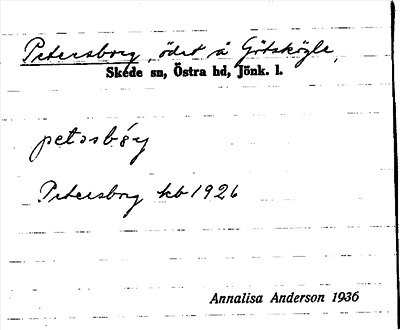 Petersborg, ödet å Götskögle,
Skéde sn, Östra hd, Jönk. l.
petəsbóy
Petersborg kb 1926
Annalisa Anderson 1936